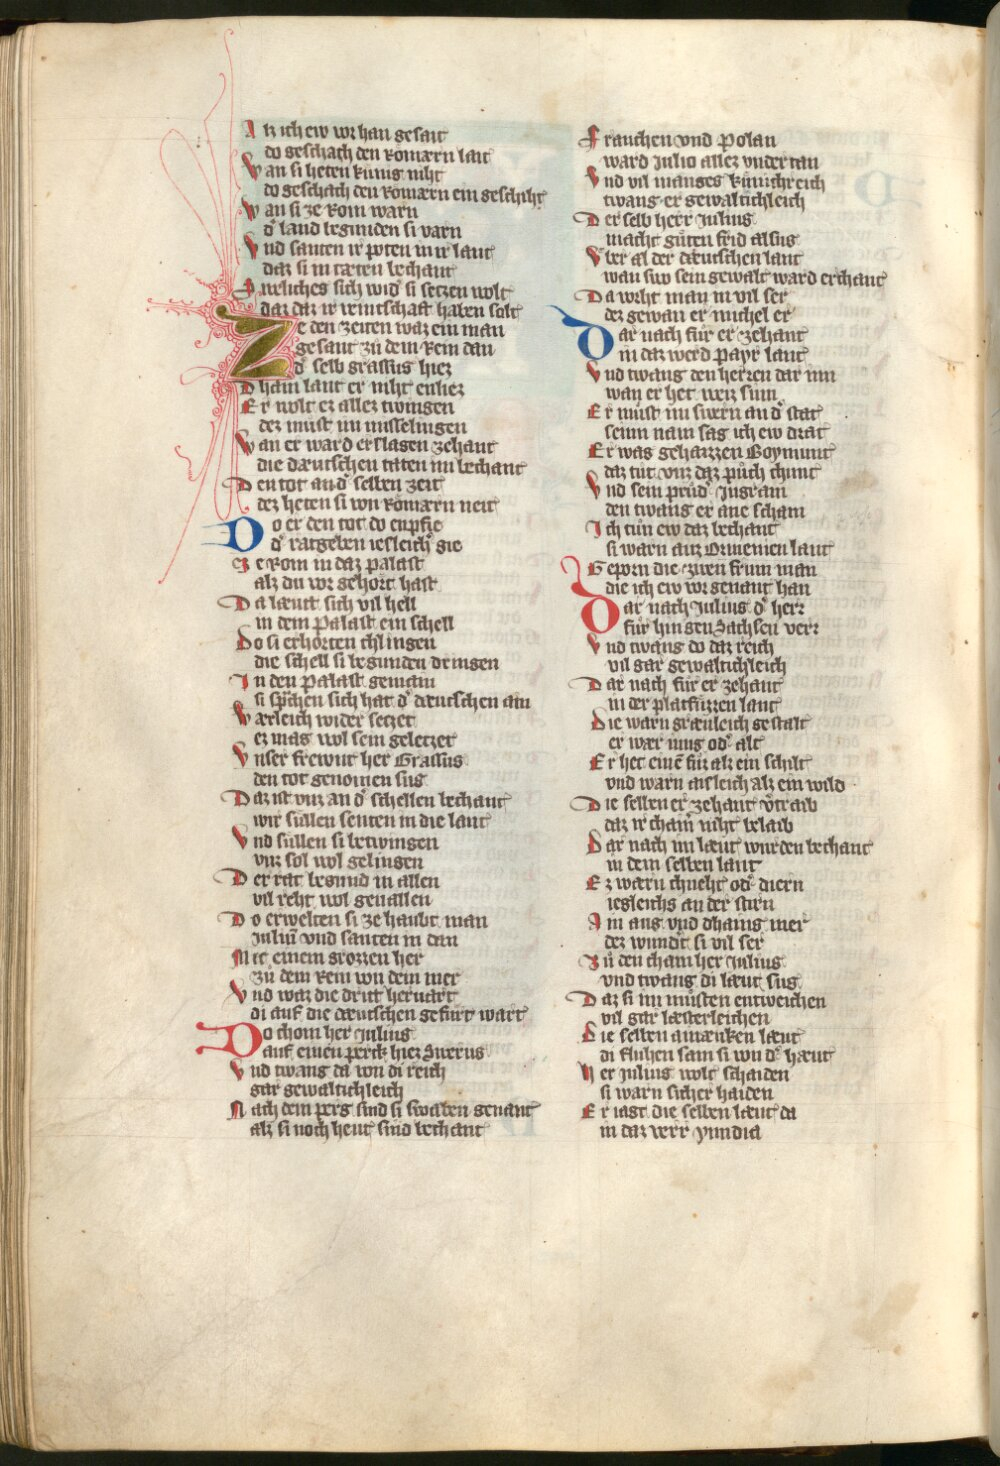 Alz ich ew vor han gesait
do geschach den Romærn lait
Wan si heten kunig niht
do geschach den Romærn ein geschiht
Wan si ze Rom warn
dͤ land begunden si varn
Und santen ir poten in ir lant
daz si in tæten bechant
Swelches sich widͤ si setzen wolt
daz daz ir veintschaft haben solt
Ze den zeiten waz ein man
gesant zů dem Rein dan
dͤ selb grassus hiez
Dhain lant er niht enliez
Er wolt ez allez twingen
dez must im misselingen
Wan er ward erslagen zehant
die dæutschen taten im bechant
Den tot an dͤ selben zeit
dez heten si von Romærn neit
Do er den tot do enpfie
dͤ ratgeben iesleichͤ gie
Ze Rom in daz palast
alz du vor gehort hast
Da læut sich vil hell
in dem palast ein schell
Do si erhorten chlingen
die schell si begunden dringen
In den palast gemain
si sprachen sich hat dͤ dæutschen ain
Wærleich wider setzet
ez mag wol sein geletzet
Unser frewnt her Grassus
den tot genomen sus
Daz ist unz an dͤ schellen bechant
wir sullen senten in die lant
Und sullen si betwingen
unz sol wol gelingen
Der rat begund in allen
vil reht wol geuallen
Do erwelten si ze haubt man
Juliu̅ vnd santen in dan
Mit einem grozzen her
zů dem Rein von dem mer
Und waz die drit heruart
di auf die dæutschen gefurt wart
Do chom her Julius
auf einen perck hiez Swerus
Und twang da von di reich
gar gewaltichleich
Nach dem perg sind si swaben genant
alz si noch heut sind bechant
Franchen vnd Polan
ward Julio allez vndertan
Und vil manges kunichreich
twang er gewaltichleich
Der selb herr Julius
macht gůten frid alsus
Uber al der dæutschen lant
wan swo sein gewalt ward erchant
Da vorht man in vil ser
dez gewan er michel er
Dar nach für er zehant
in daz werd payr lant
Und twang den herren dar inn
wan er het weiz sinn
Er must im swern an dͤ stat
seinn nam sag ich ew drat
Er was gehaizzen Boymunt
daz tut vnz daz půch chunt
Und sein průdͤ Ingram
den twang er ane scham
Ich tůn ew daz bechant
si warn auz Ormenien lant
Geporn die zwen frum man
die ich ew vor genant han
Dar nach Julius dͤ herr
für hin gen Sachsen verr
Und twang do daz reich
vil gar gewaltichleich
Dar nach für er zehant
in der platfuzzen lant
Die warn græuleich gestalt
er wær iung odͤ alt
Er het eine̅ fůz alz ein schilt
vnd warn aisleich alz ein wild
Die selben er zehant vͤtraib
daz ir chain niht belaib
Dar nach im læut wurden bechant
in dem selben lant
Ez wærn chneht odͤ diern
iegleichs an der stirn
Ain aug vnd dhains mer
dez wundͤt si vil ser
Zů den cham her Julius
vnd twang di læut sus
Daz si im můsten entweichen
vil gar læsterleichen
Die selben ainæuken læut
di fluhen sam si von dͤ hæut
Her Julius wolt schaiden
si warn sicher haiden
Er iagt die selben læut da
in daz verr yndia